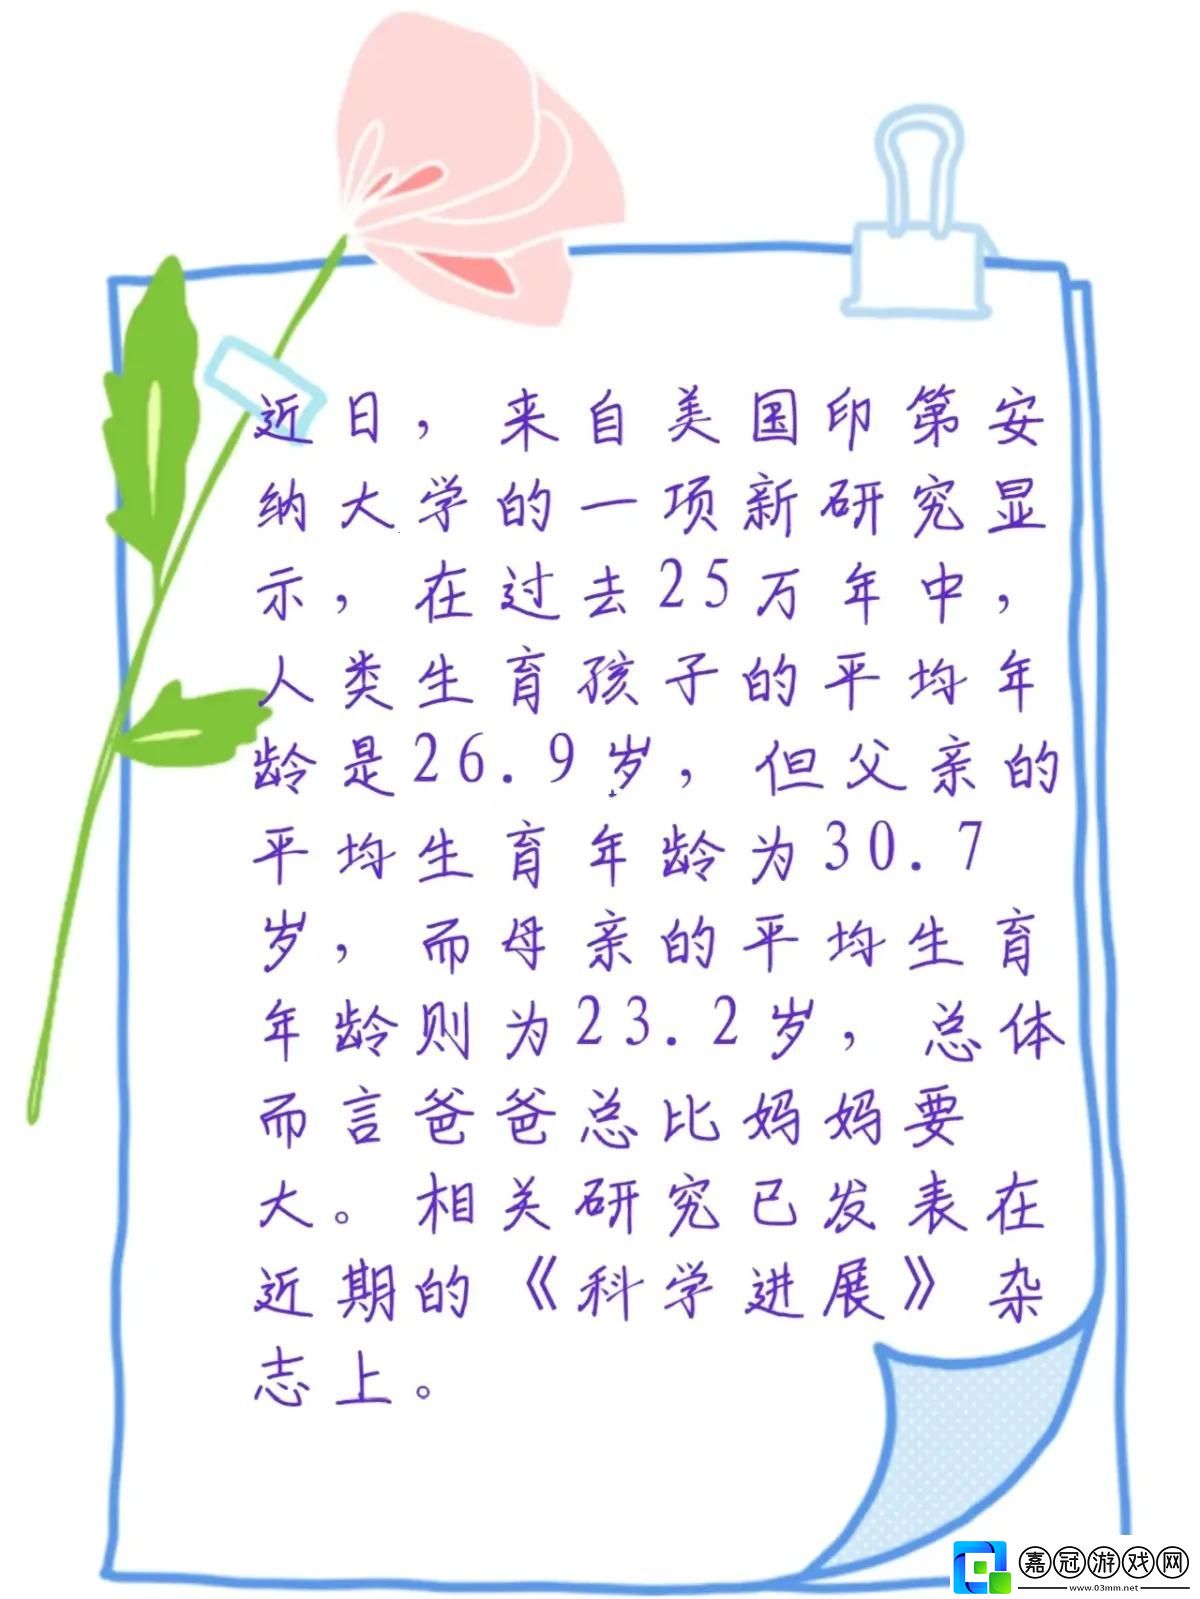 近日，来自美国印第安
纳大学的一项新研究显
示，在过去25万年中，
人类生育孩子的平均年
龄是26.9岁，但父亲的
平均生育年龄为30.7
岁，而母亲的平均生育
年龄则为23.2岁，总体
而言爸爸总比妈妈要
大。相关研究已发表在
近期的《科学进展》杂
志上。
嘉冠游戏网
www.03mm.net